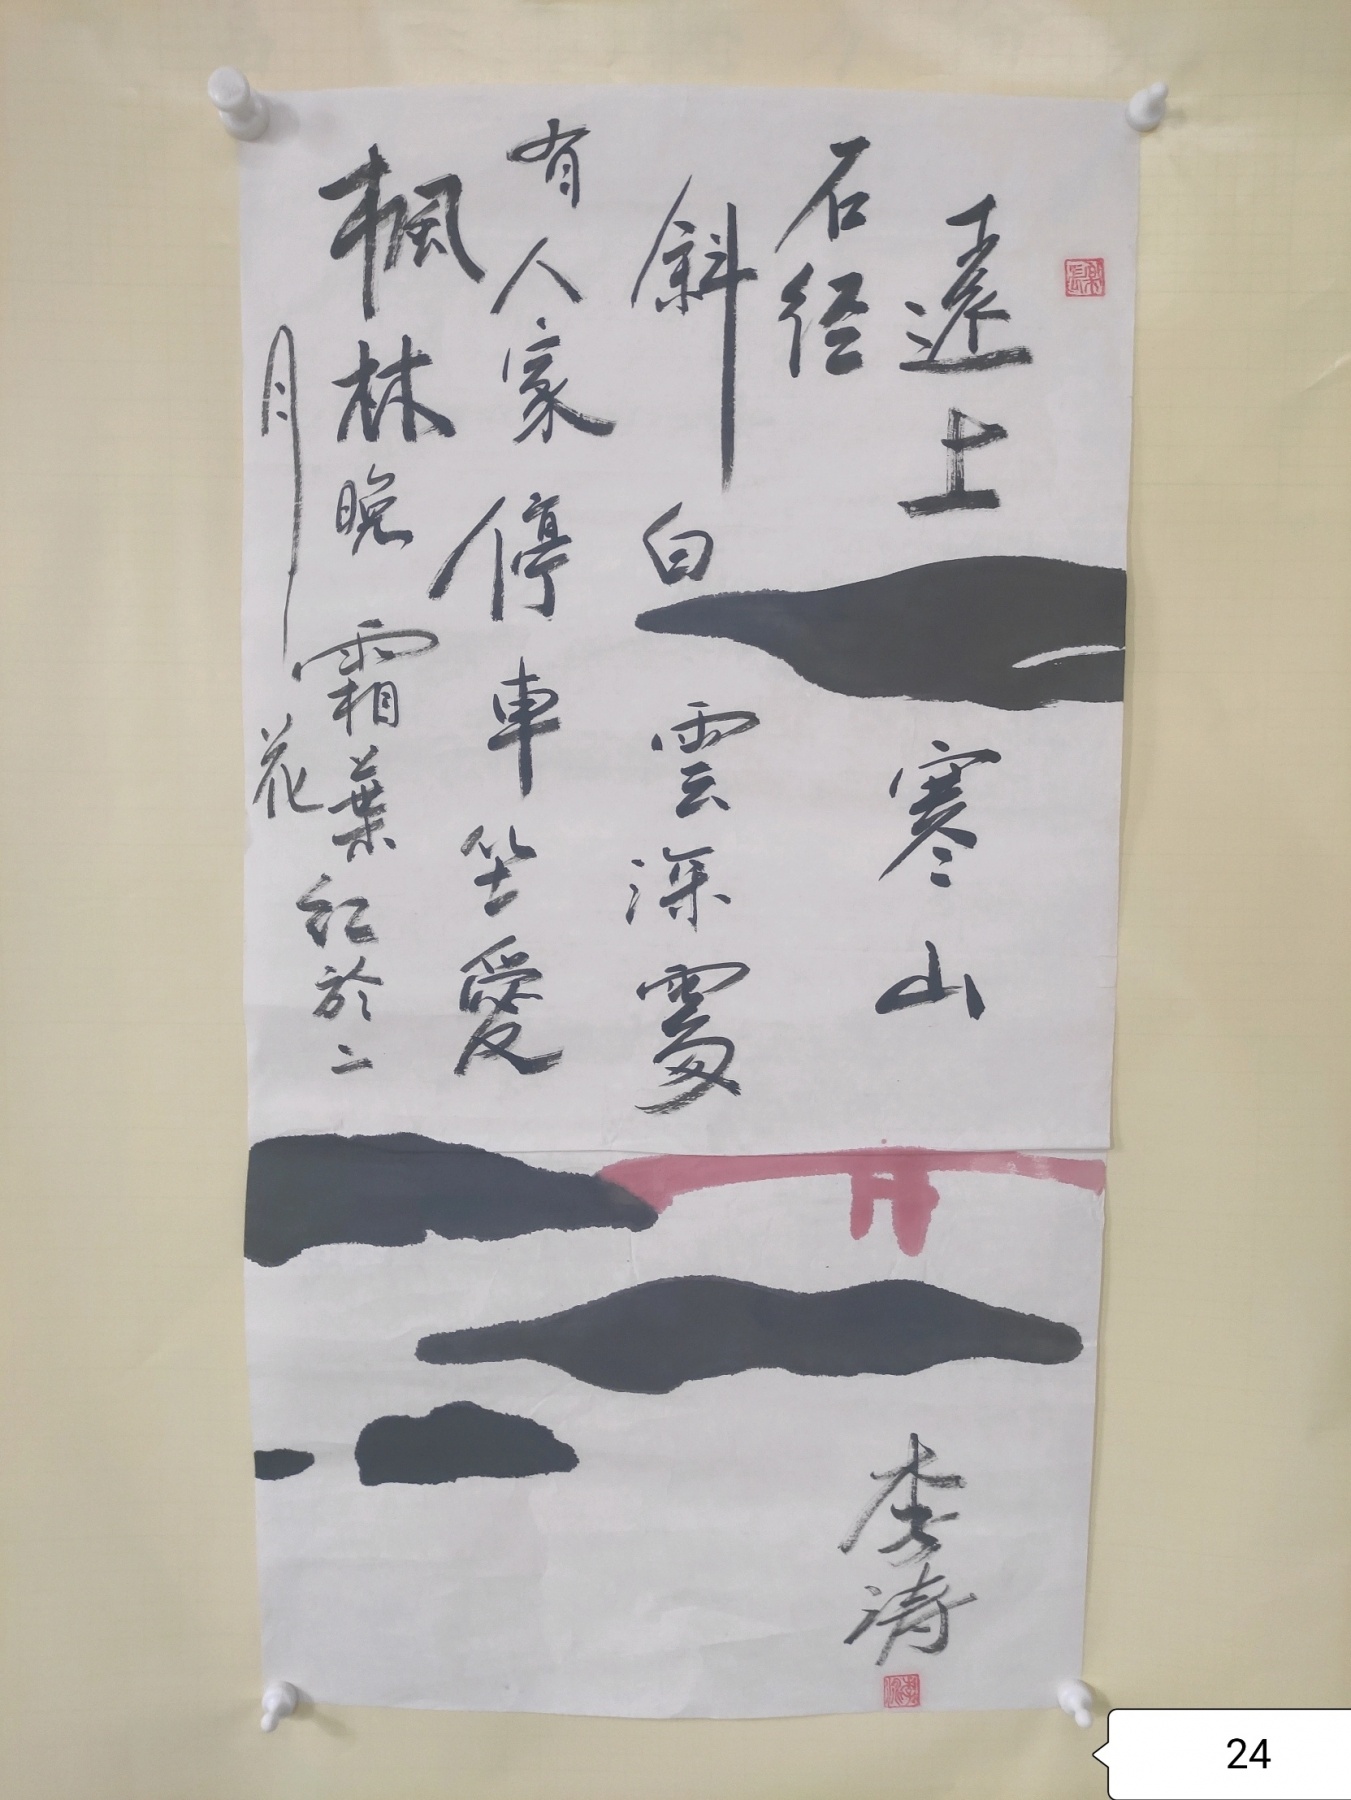 遠上
寒山
石径
斜白
雲深處
有人家
停車坐愛
楓林晚
霜葉紅於二
月
花
李濤
24